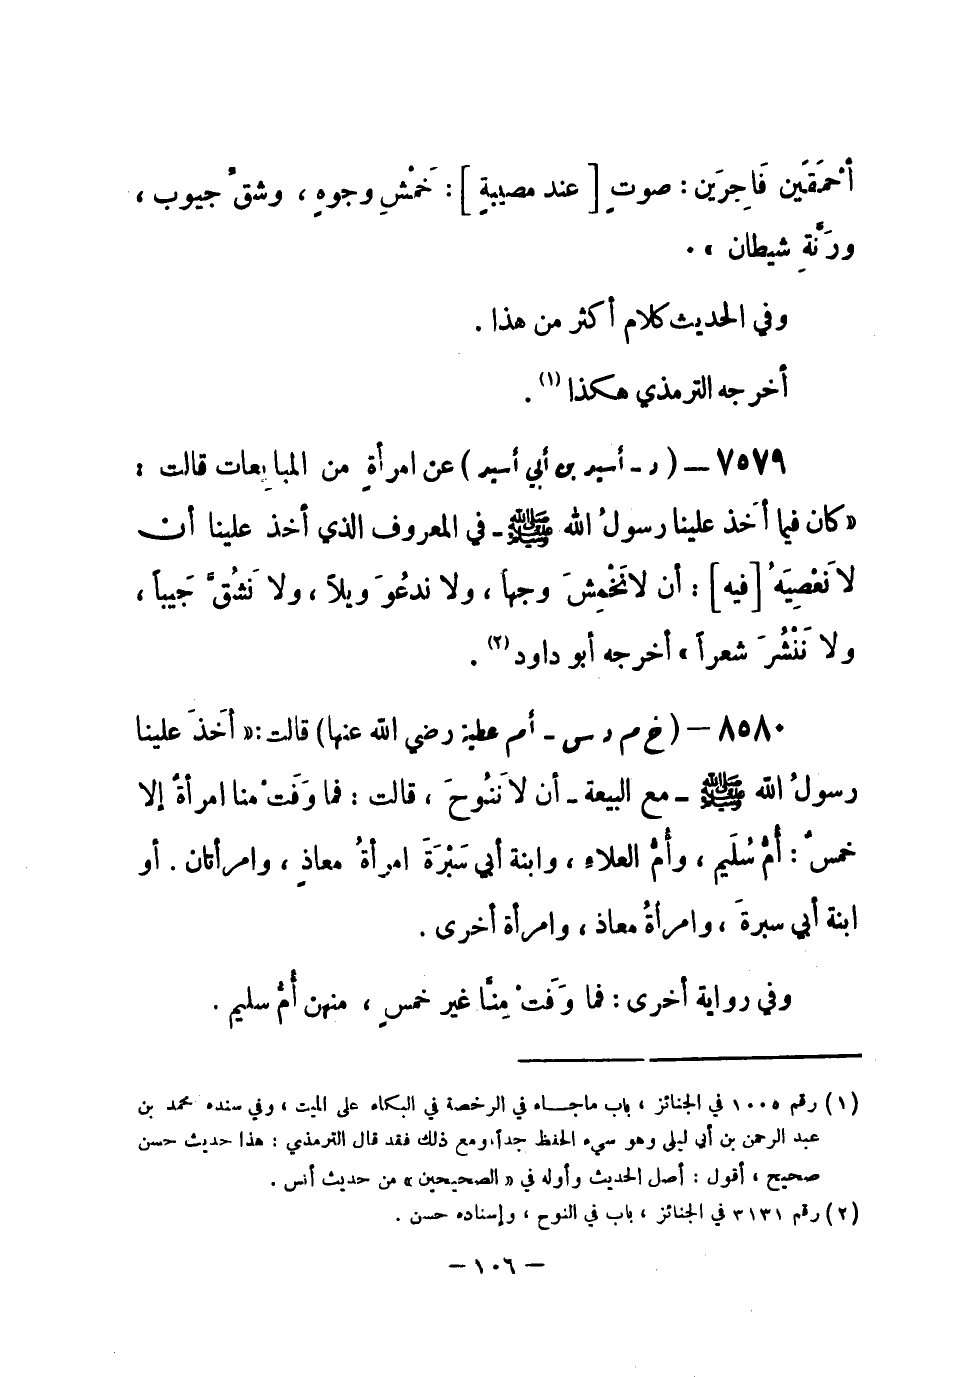 أحْمَقَينِ فَاجِرَين : صوتٍ [ عند مصيبةٍ ] : خَمْشِ وجوهٍ ، وشقِّ جيوب ،
ورَنَّةِ شيطان » .
وفي الحديث كلام أكثر من هذا .
أخرجه الترمذي هكذا (١) .
٧٥٧٩ — ( د - أسيد بن أبي أسيد ) عن امرأةٍ من المبايعات قالت :
« كان فيما أَخذ علينا رسولُ الله ﷺ - في المعروف الذي أخذ علينا أن
لا نَعْصِيَهُ [ فيه ] : أن لا نَخْمِشَ وجهاً ، ولا ندعُوَ ويلاً ، ولا نَشُقَّ جَيباً ،
ولا نَنْشُرَ شعراً » أخرجه أبو داود (٢) .
٨٥٨٠ — ( خ م د س - أم عطية رضي الله عنها ) قالت : « أَخذَ علينا
رسولُ الله ﷺ - مع البيعة - أن لا نَنُوحَ ، قالت : فما وَفَتْ منا امرأةٌ إلا
خمسٌ : أُمُّ سُلَيم ، وأُمُّ العلاءِ ، وابنة أبي سَبْرَةَ امرأةُ معاذٍ ، وامرأتان . أو
ابنة أبي سبرةَ ، وامرأةُ معاذ ، وامرأة أخرى .
وفي رواية أخرى : فما وَفَتْ مِنَّا غير خمسٍ ، منهن أُمُّ سليم .
(١) رقم ١٠٠٥ في الجنائز ، باب ماجاء في الرخصة في البكاء على الميت ، وفي سنده محمد بن
عبد الرحمن بن أبي ليلى وهو سيء الحفظ جداً، ومع ذلك فقد قال الترمذي : هذا حديث حسن
صحيح ، أقول : أصل الحديث وأوله في « الصحيحين » من حديث أنس .
(٢) رقم ٣١٣١ في الجنائز ، باب في النوح ، وإسناده حسن .
— ١٠٦ —